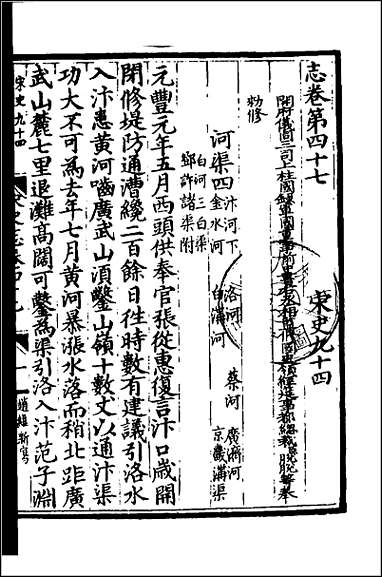 志卷第四十七　宋史九十四
開府儀同三司上柱國錄軍國重事前中書右丞相監修國史領經筵事都總裁臣脫脫等奉
勅修
河渠四
汴河下　洛河　蔡河　廣濟河
金水河　白溝河　京畿溝渠
白河　三白渠
鄧許諸渠附
元豐元年五月西頭供奉官張從惠復言汴口歲開
閉修堤防通漕纔二百餘日往時數有建議引洛水
入汴患黃河嚙廣武山須鑿山嶺十數丈以通汴渠
功大不可為去年七月黃河暴漲水落而稍北距廣
武山麓七里退灘高闊可鑿為渠引洛入汴范子淵
宋史九十四
趙維新寫